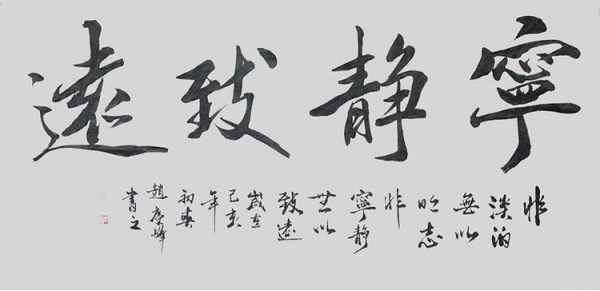 寧靜致遠
非
淡泊
無以
明志
非
寧靜
無以
致遠
歲在
己亥
年
初春
趙
書之